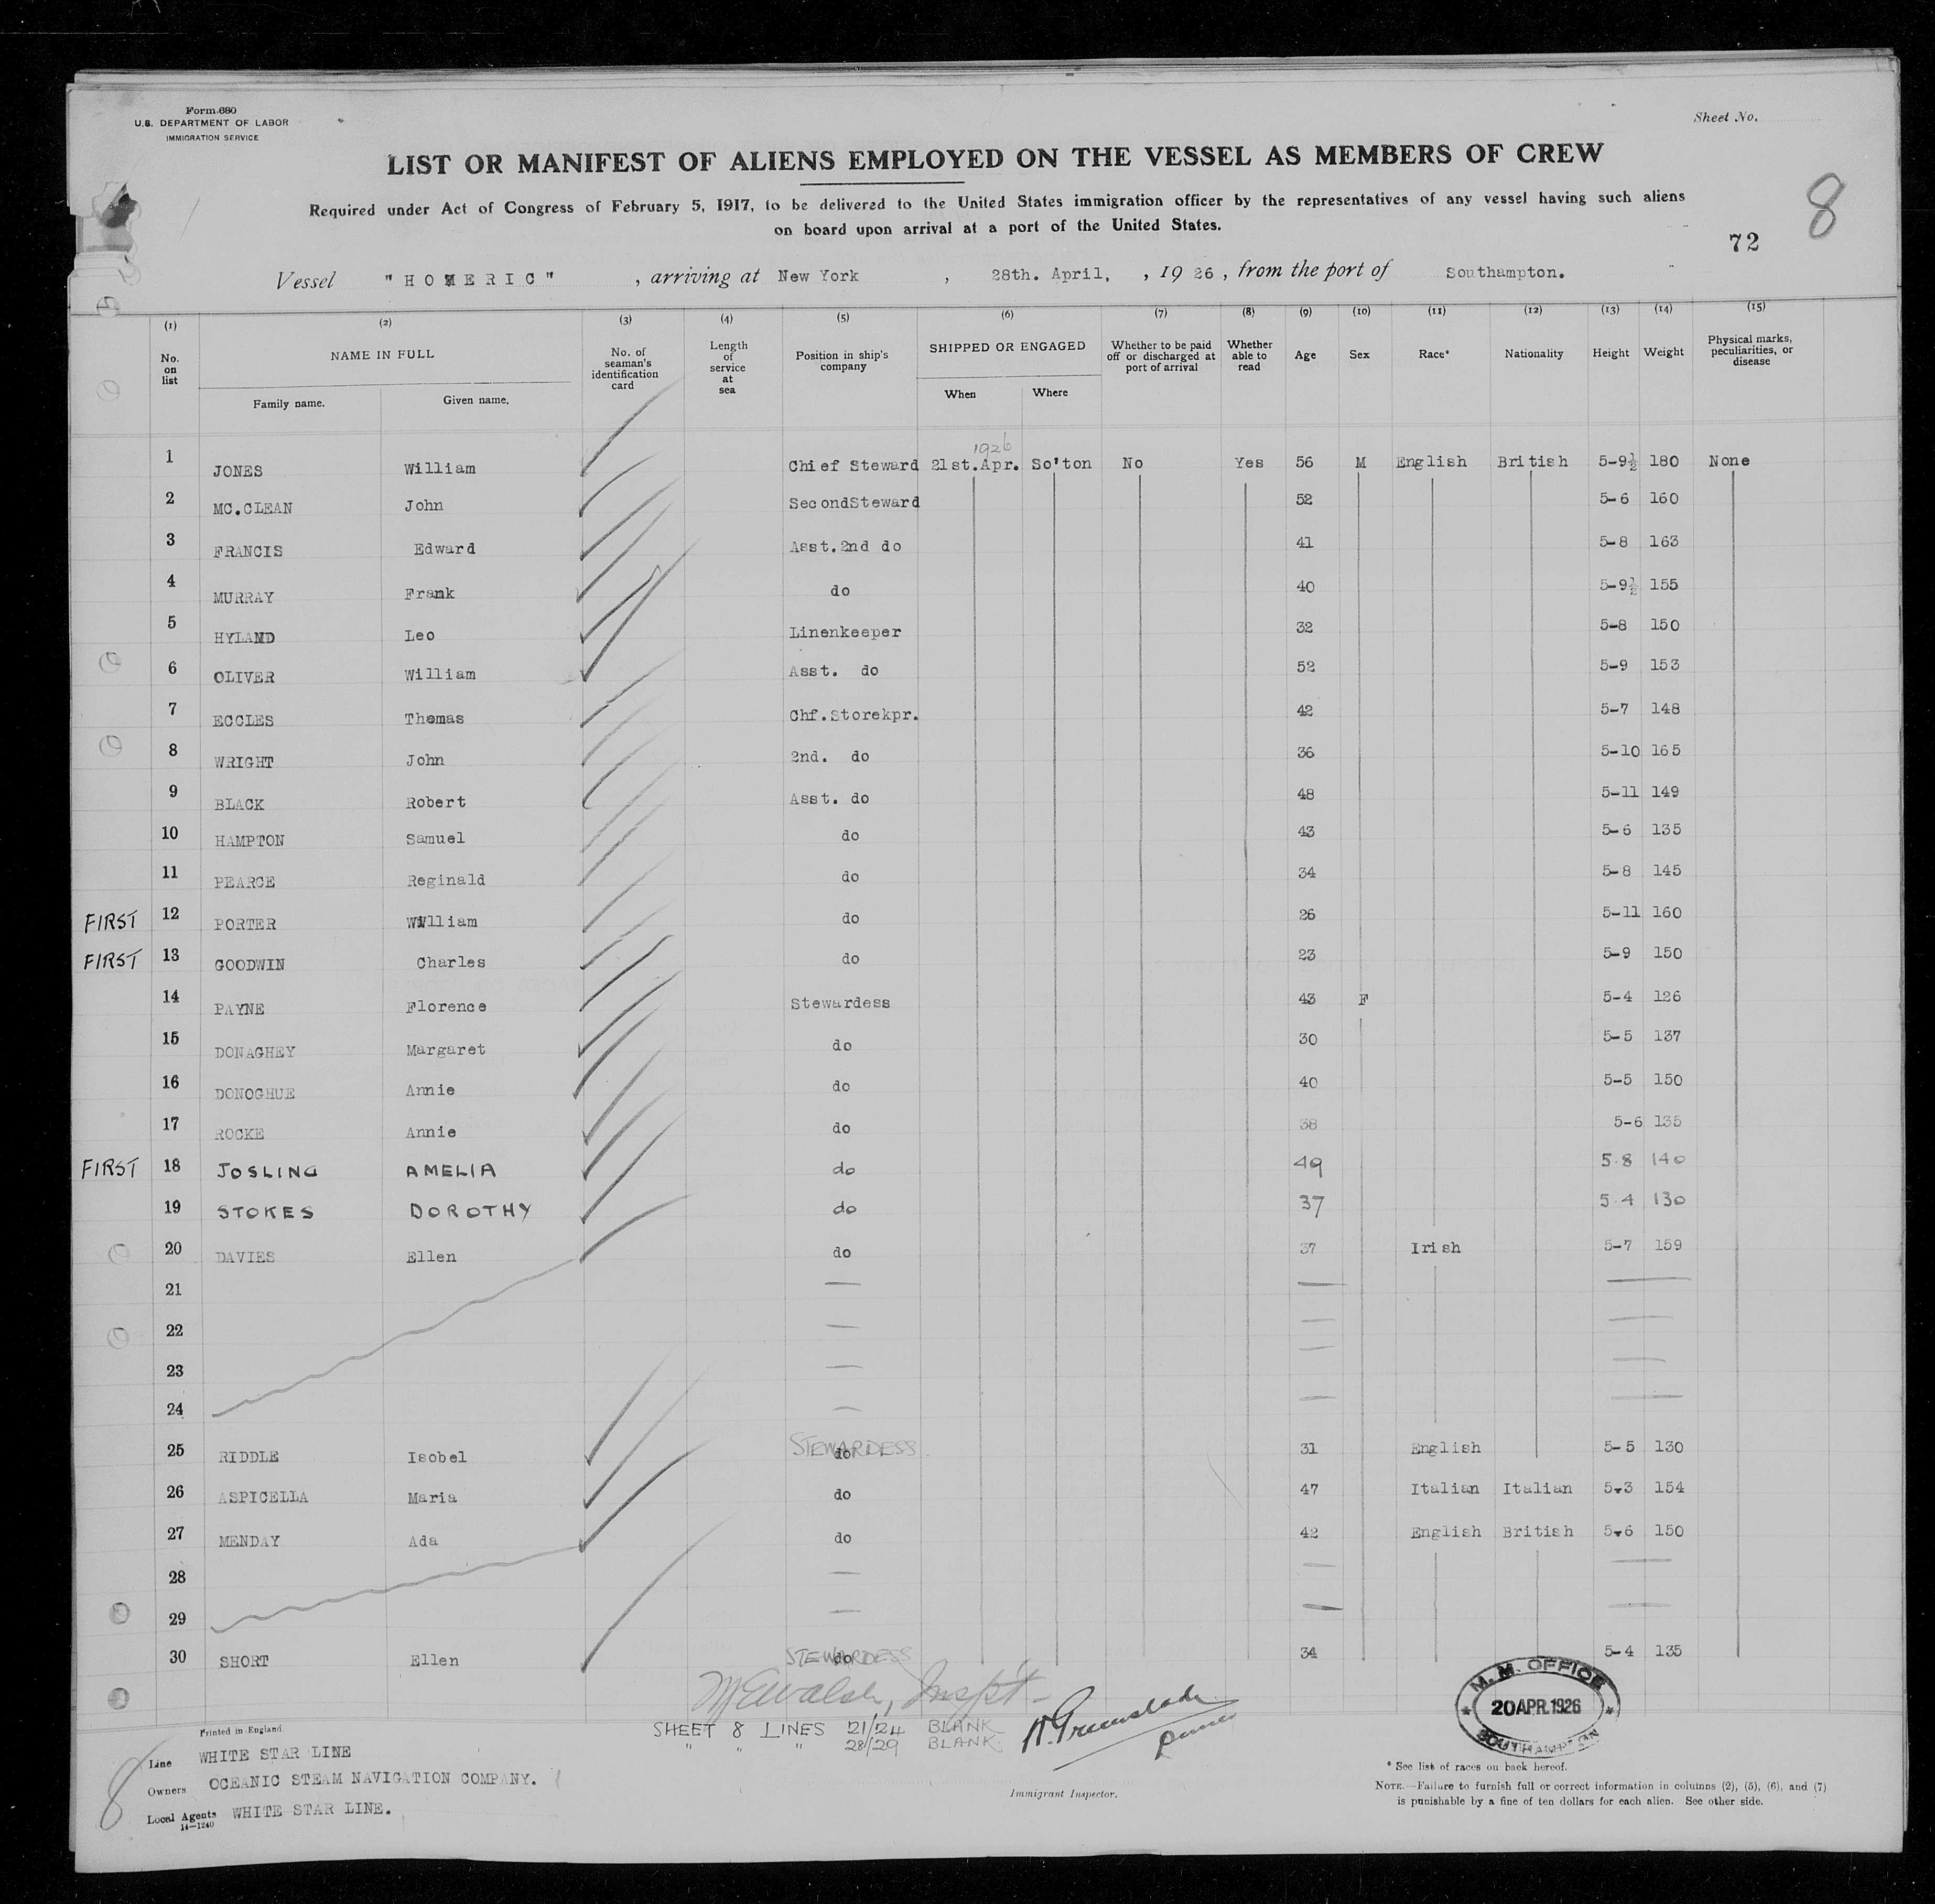 Form 680
U.S. DEPARTMENT OF LABOR
IMMIGRATION SERVICE
Sheet No.
LIST OR MANIFEST OF ALIENS EMPLOYED ON THE VESSEL AS MEMBERS OF CREW
Required under Act of Congress of February 5, 1917, to be delivered to the United States immigration officer by the representatives of any vessel having such aliens
on board upon arrival at a port of the United States.
8
72
Vessel "HOMERIC", arriving at New York, 28th. April, , 1926, from the port of Southampton.
(1) (2) (3) (4) (5) (6) (7) (8) (9) (10) (11) (12) (13) (14) (15)
No. on list NAME IN FULL No. of seaman's identification card Length of service at sea Position in ship's company SHIPPED OR ENGAGED Whether to be paid off or discharged at port of arrival Whether able to read Age Sex Race* Nationality Height Weight Physical marks, peculiarities, or disease
Family name. Given name. When Where
1926
1 JONES William Chief Steward 21st.Apr. So'ton No Yes 56 M English British 5-9½ 180 None
2 MC.CLEAN John SecondSteward 52 5-6 160
3 FRANCIS Edward Asst.2nd do 41 5-8 163
4 MURRAY Frank do 40 5-9½ 155
5 HYLAND Leo Linenkeeper 32 5-8 150
6 OLIVER William Asst. do 52 5-9 153
7 ECCLES Thomas Chf.Storekpr. 42 5-7 148
8 WRIGHT John 2nd. do 36 5-10 165
9 BLACK Robert Asst. do 48 5-11 149
10 HAMPTON Samuel do 43 5-6 135
11 PEARCE Reginald do 34 5-8 145
FIRST 12 PORTER William do 26 5-11 160
FIRST 13 GOODWIN Charles do 23 5-9 150
14 PAYNE Florence Stewardess 43 F 5-4 126
15 DONAGHEY Margaret do 30 5-5 137
16 DONOGHUE Annie do 40 5-5 150
17 ROCKE Annie do 38 5-6 135
FIRST 18 JOSLING AMELIA do 49 5.8 140
19 STOKES DOROTHY do 37 5.4 130
20 DAVIES Ellen do 37 Irish 5-7 159
21
22
23
24
25 RIDDLE Isobel do STEWARDESS 31 English 5-5 130
26 ASPICELLA Maria do 47 Italian Italian 5-3 154
27 MENDAY Ada do 42 English British 5-6 150
28
29
30 SHORT Ellen do STEWARDESS 34 5-4 135
Walsh, Inspt
SHEET 8 LINES 21/24 BLANK
" " " 28/29 BLANK
Immigrant Inspector.
M.M. OFFICE
20 APR.1926
SOUTHAMPTON
Printed in England.
Line WHITE STAR LINE
Owners OCEANIC STEAM NAVIGATION COMPANY.
Local Agents WHITE STAR LINE.
14—1240
8
* See list of races on back hereof.
NOTE.—Failure to furnish full or correct information in columns (2), (5), (6), and (7)
is punishable by a fine of ten dollars for each alien. See other side.